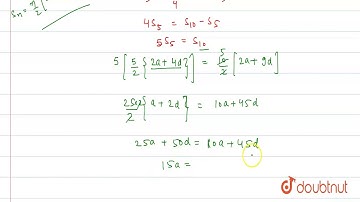 Sn = n/2 [
4
4S5 = S10 - S5
5S5 = S10
5 [ 5/2 { 2a + 4d } ] = [2a + 9d]
{ a + 2d } = 10a + 45d
25a + 50d = 10a + 45d
15a =
doubtnut